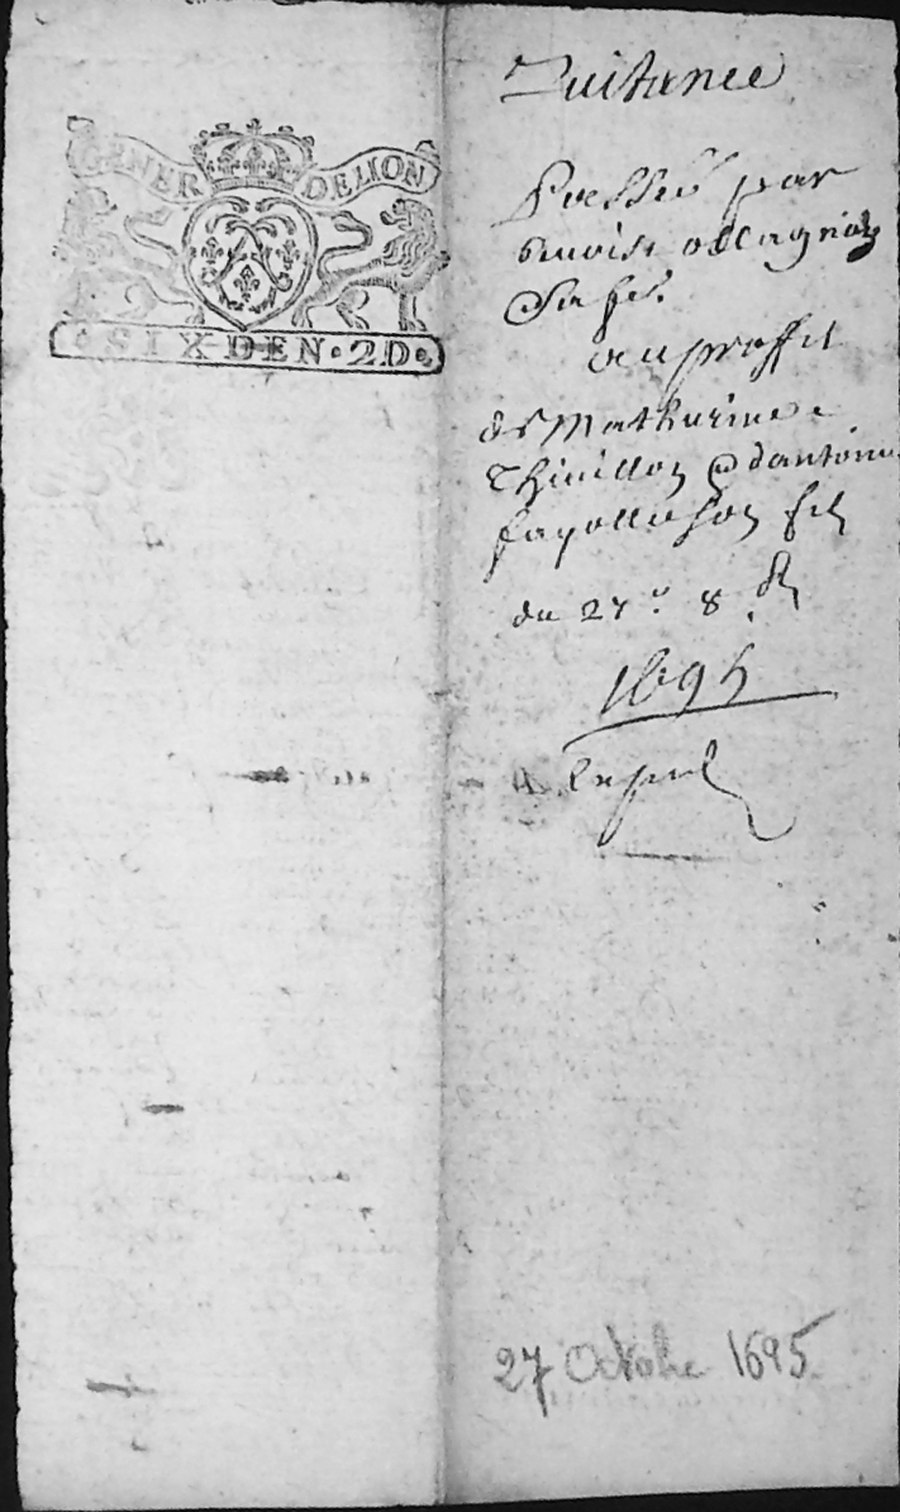 GENER DELION
SIX DEN · 2D ·
Quitance
Passée par
benoist ollagnier
au proffit
de Mathurine
Thivillon & dantoine
fayolle son filz
du 27e 8
1695
27 Octobre 1695